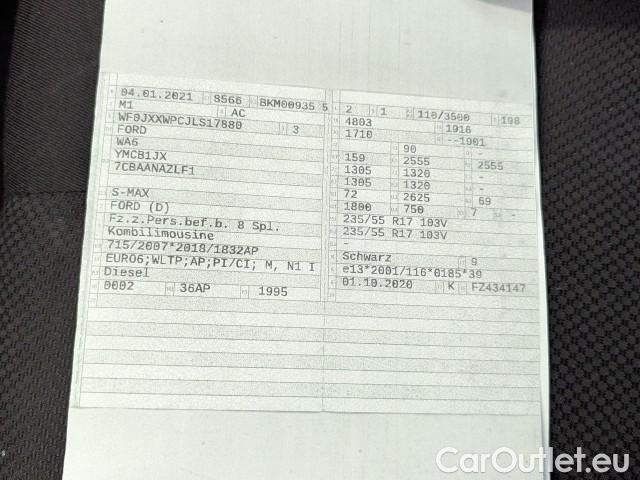 04.01.2021 8566 BKM00935 5
M1 AC
WF0JXXWPCJLS17880 3
FORD
WA6
YMCB1JX
7CBAANAZLF1
S-MAX
FORD (D)
Fz.z.Pers.bef.b. 8 Spl.
Kombilimousine
715/2007*2018/1832AP
EURO6;WLTP;AP;PI/CI; M, N1 I
Diesel
0002 36AP 1995
2 1 110/3500 198
4803 1916
1710 --1901
90 -
159 2555 2555
1305 1320 -
1305 1320 -
72 2625 69
1800 750 7 -
235/55 R17 103V
235/55 R17 103V
-
Schwarz 9
e13*2001/116*0185*39
01.10.2020 K FZ434147
CarOutlet.eu